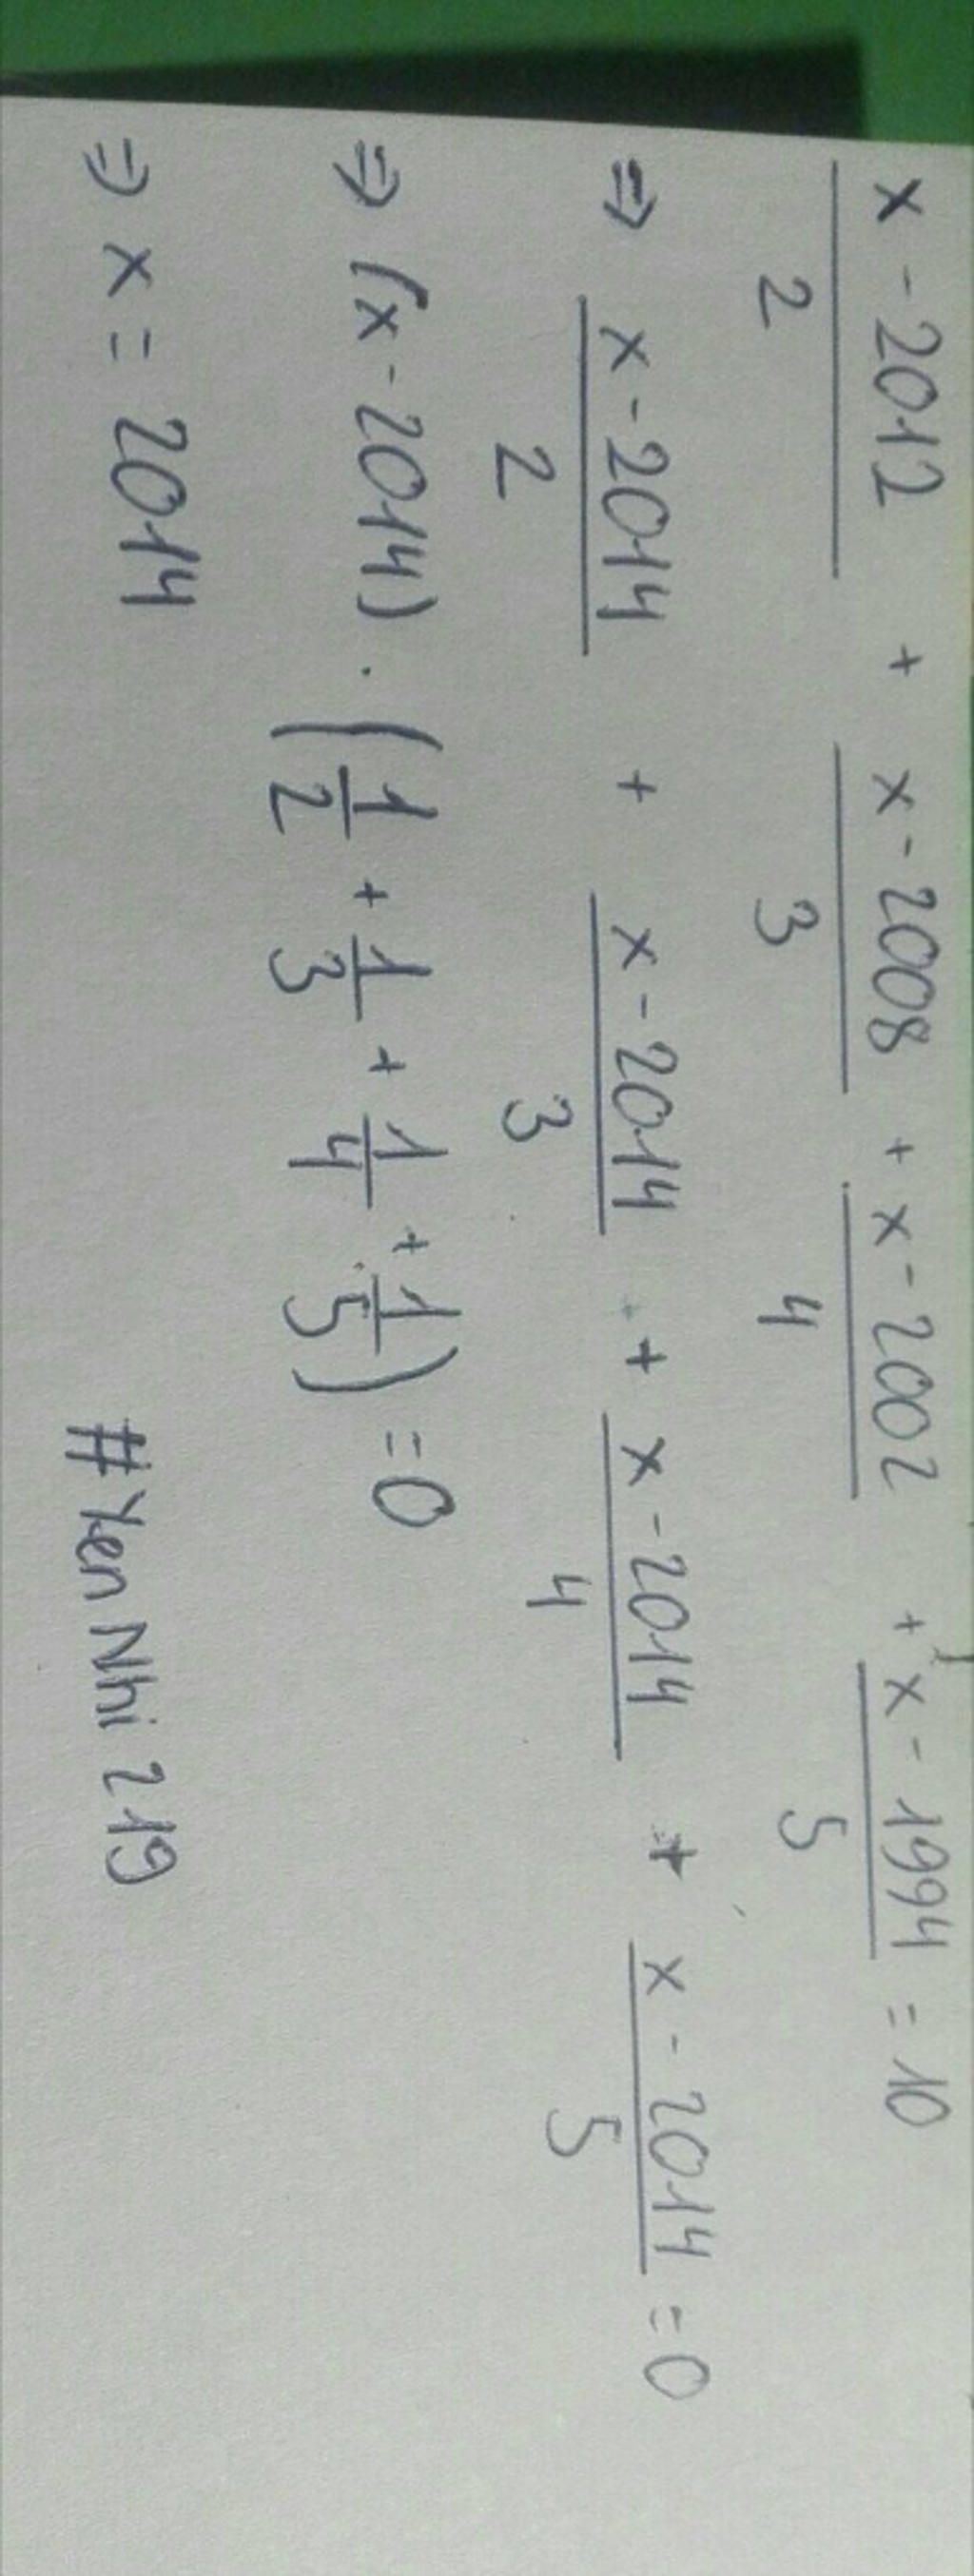 x - 2012 / 2 + x - 2008 / 3 + x - 2002 / 4 + x - 1994 / 5 = 10
⇒ x - 2014 / 2 + x - 2014 / 3 + x - 2014 / 4 + x - 2014 / 5 = 0
⇒ (x - 2014) . (1/2 + 1/3 + 1/4 + 1/5) = 0
⇒ x = 2014
#Yen Nhi 219